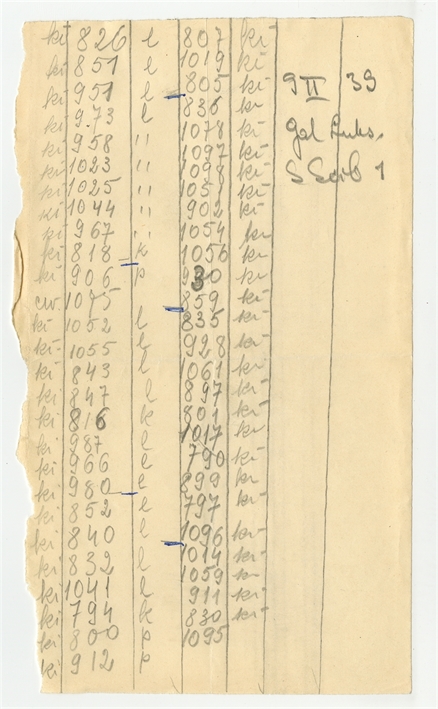 ki 826 l 807 ki
ki 851 l 1019 ki
ki 951 l 805 ki
ki 973 l 836 ki
ki 958 " 1078 ki
ki 1023 " 1097 ki
ki 1025 " 1098 ki
ki 1044 " 1051 ki
ki 967 " 902 ki
ki 818 k 1054 ki
ki 906 p 1056 ki
cw. 1075 930 ki
ki 1052 l 859 ki
ki 1055 l 835 ki
ki 843 l 928 ki
ki 847 l 1061 ki
ki 816 k 897 ki
ki 987 l 801 ki
ki 966 l 1017 ki
ki 980 e 790 ki
ki 852 l 899 ki
ki 840 l 797 ki
ki 832 l 1096 ki
ki 1041 l 1014 ki
ki 794 k 1059 ki
ki 800 p 911 ki
ki 912 p 830 ki
1095
9 II 39
S Seib 1